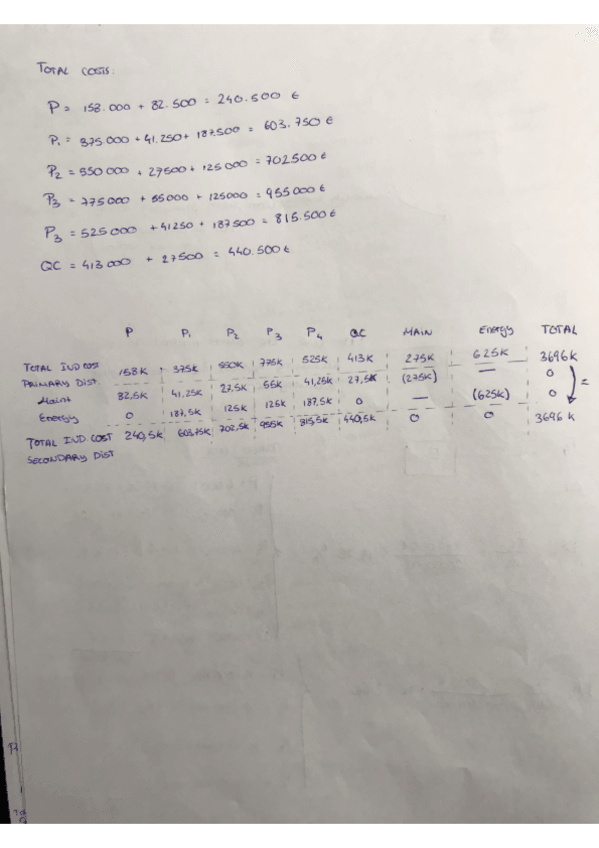 TOTAL COSTS:
P = 158.000 + 82.500 = 240.500 €
P1 = 375000 + 41.250 + 187.500 = 603.750 €
P2 = 550000 + 27500 + 125000 = 702500 €
P3 = 775000 + 55000 + 125000 = 955000 €
P3 = 525000 + 41250 + 187500 = 815.500 €
QC = 413000 + 27500 = 440.500 €
P P1 P2 P3 P4 QC MAIN Energy TOTAL
TOTAL IND COST 158K 375K 550K 775K 525K 413K 275K 625K 3696K
PRIMARY DIST. 0
Maint 82,5K 41,25K 27,5K 55K 41,25K 27,5K (275K) —
Energy 0 187,5K 125K 125K 187,5K 0 — (625K) 0 =
TOTAL IND. COST 240,5K 603.75K 702,5K 955K 815,5K 440,5K 0 0 3696K
SECONDARY DIST